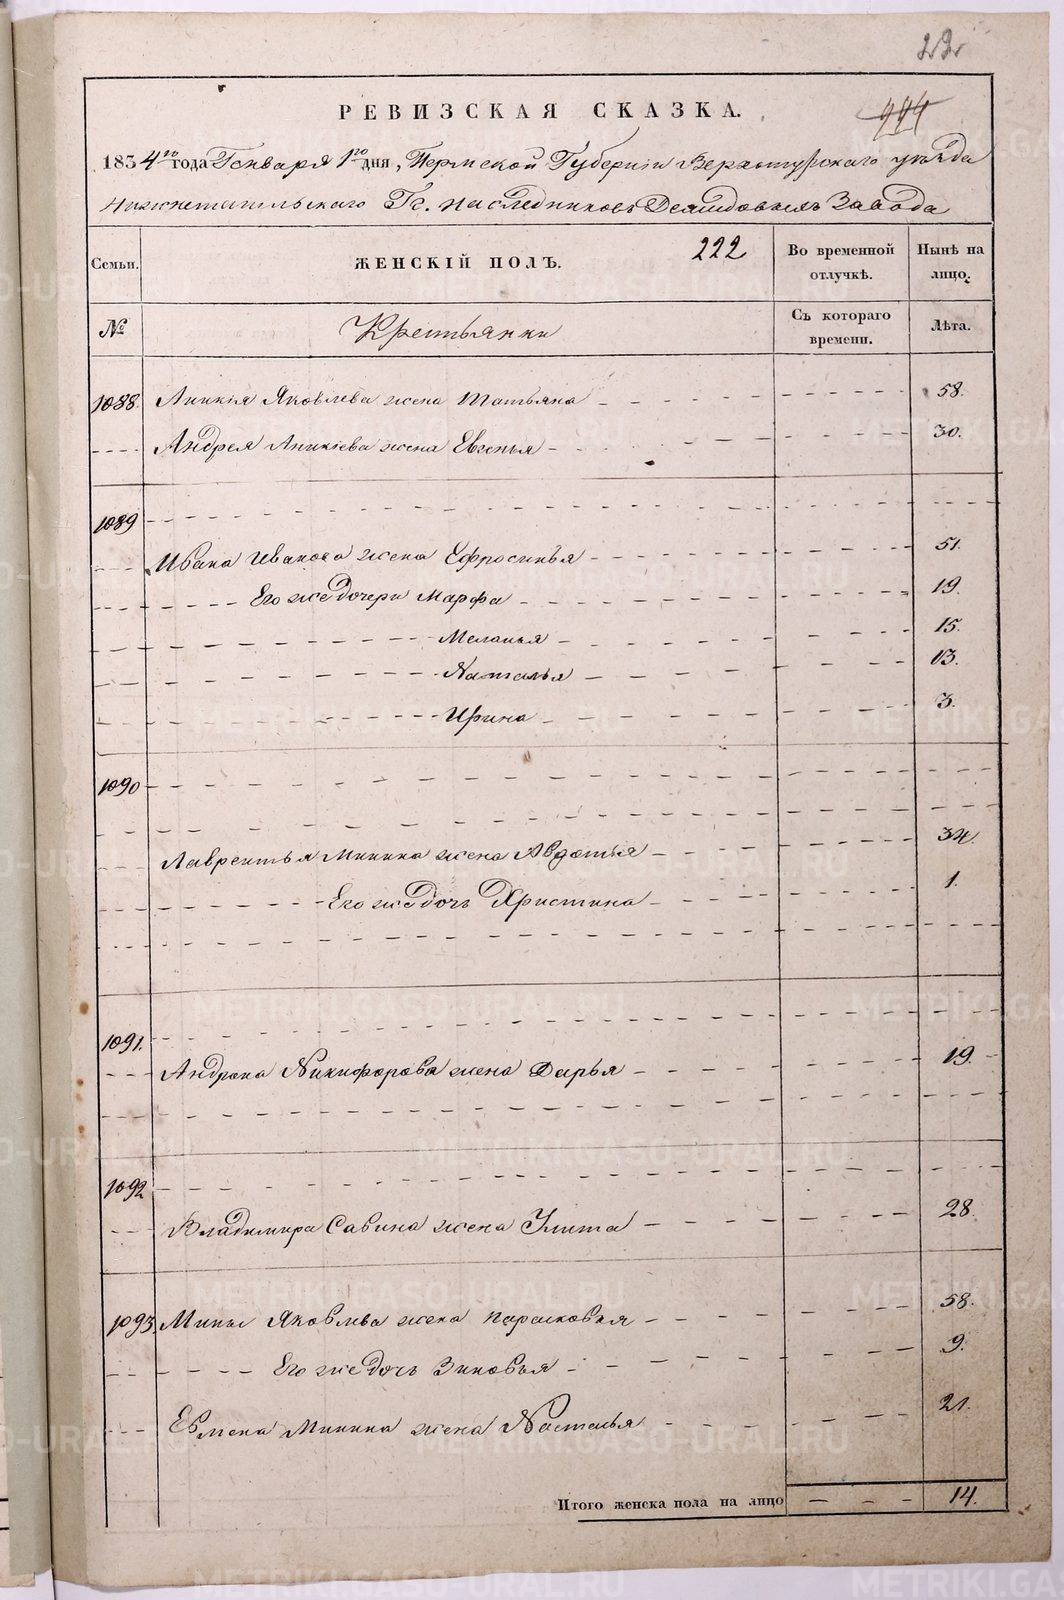 222
994
РЕВИЗСКАЯ СКАЗКА.
1834го года Генваря 1го дня, Пермской Губернии Верхотурскаго уезда
Нижнетагильскаго Гг. наследниковъ Демидовыхъ Завода
Семьи. ЖЕНСКІЙ ПОЛЪ. 222 Во временной отлучкѣ. Нынѣ на лицо.
№ Крестьянки Съ котораго времени. Лѣта.
1088. Аникія Яковлева жена Татьяна 58.
Андрея Аникіева жена Евгенья 30.
1089
Ивана Иванова жена Ефросинья 51.
Его же дочери Марфа 19.
Меланья 15.
Наталья 13.
Ирина 3.
1090
Лаврентья Минина жена Авдотья 34.
Его же дочь Христина 1.
1091.
Андрона Никифорова жена Дарья 19.
1092
Владимира Савина жена Улита 28.
1093. Мины Яковлева жена Парасковья 58.
Его же дочь Зиновья 9.
Евмена Минина жена Наталья 21.
Итого женска пола на лицо 14.
METRIKI.GASO-URAL.RU